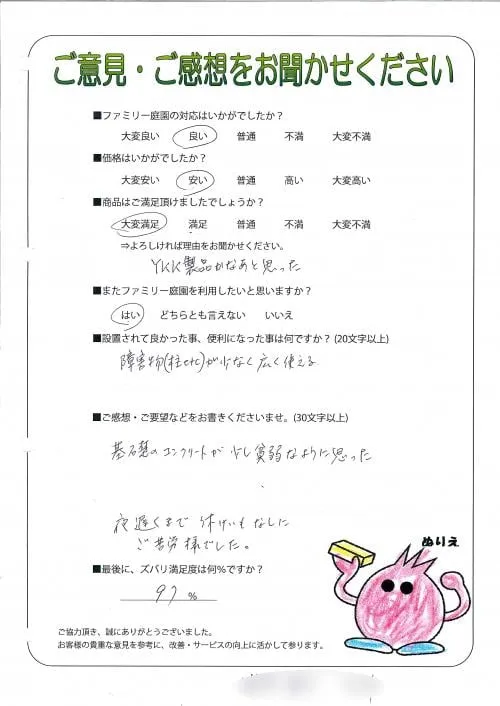 ご意見・ご感想をお聞かせください
■ファミリー庭園の対応はいかがでしたか？
大変良い 良い 普通 不満 大変不満
■価格はいかがでしたか？
大変安い 安い 普通 高い 大変高い
■商品はご満足頂けましたでしょうか？
大変満足 満足 普通 不満 大変不満
⇒よろしければ理由をお聞かせください。
YKK製品かなあと思った
■またファミリー庭園を利用したいと思いますか？
はい どちらとも言えない いいえ
■設置されて良かった事、便利になった事は何ですか？(20文字以上)
障害物(柱etc)が少なく広く使える
■ご感想・ご要望などをお書きくださいませ。(30文字以上)
基礎のコンクリートが少し貧弱なように思った
夜遅くまで休けいもなしに
ご苦労様でした。
■最後に、ズバリ満足度は何％ですか？
97 %
ぬりえ
ご協力頂き、誠にありがとうございました。
お客様の貴重な意見を参考に、改善・サービスの向上に活かして参ります。